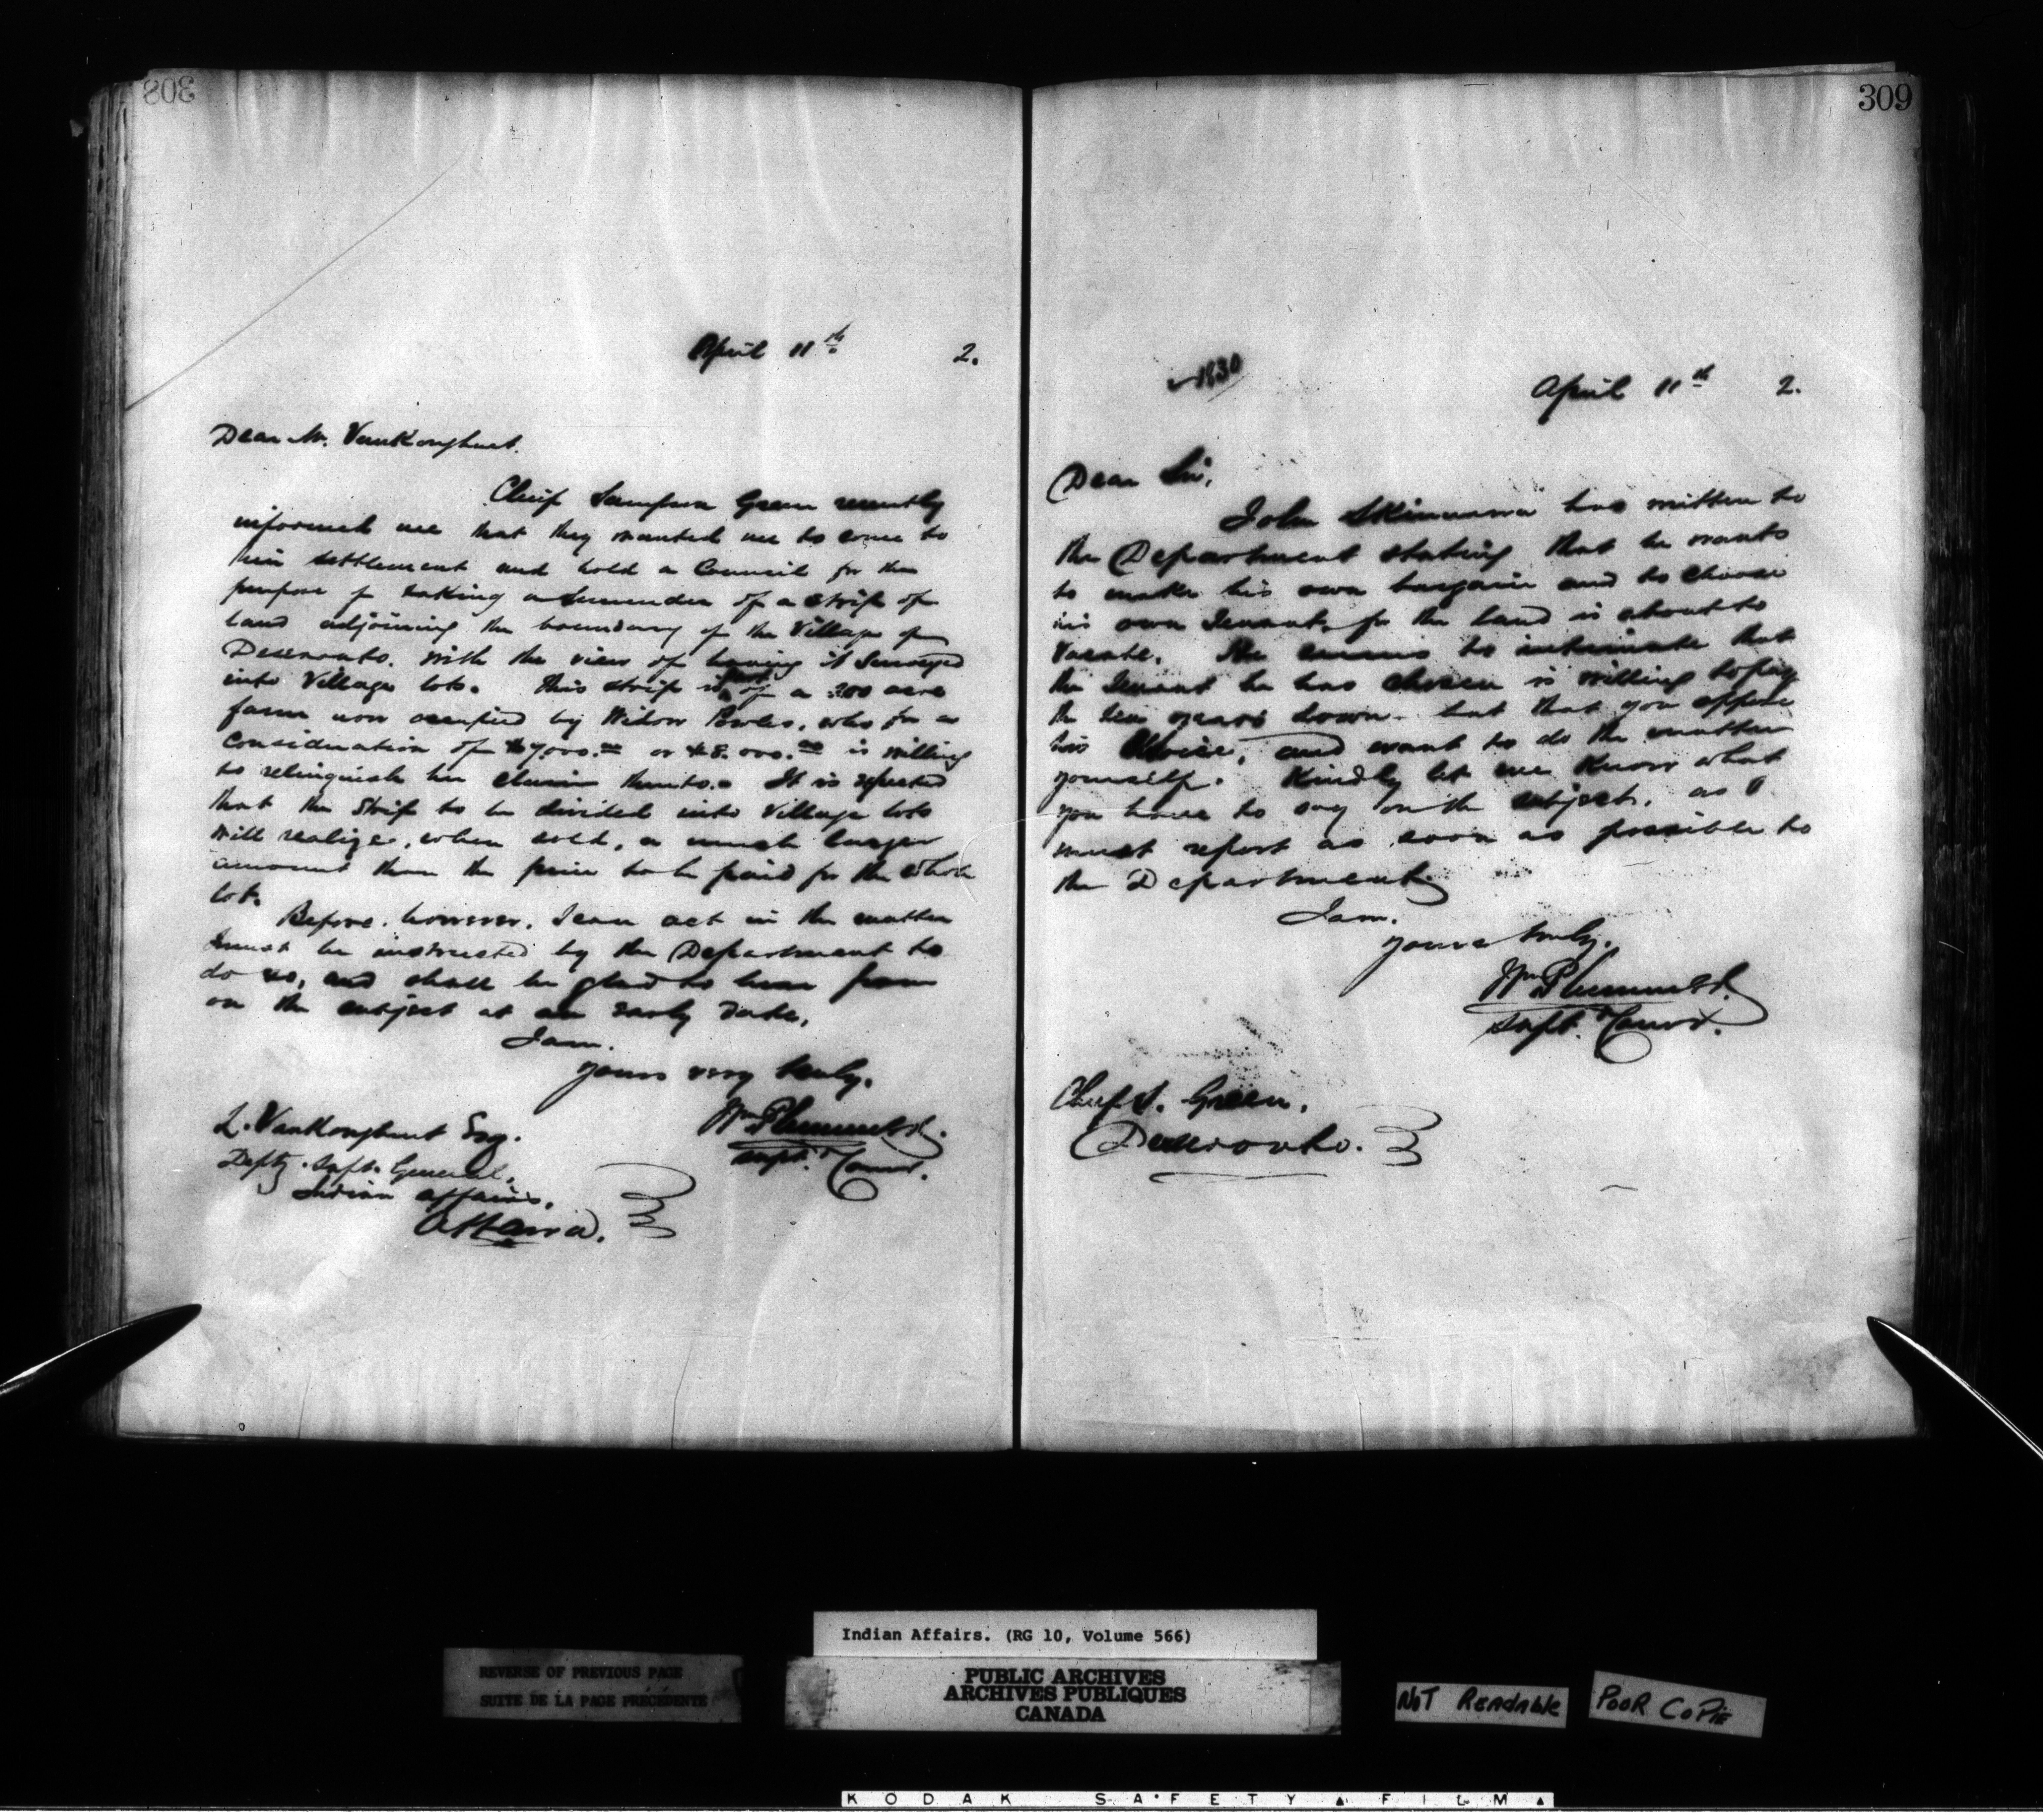 308
April 11th 2.
Dear Mr. VanKoughnet.
Chief Sampson Green recently
informed me that they wanted me to come to
their settlement and hold a Council for the
purpose of taking a Surrender of a strip of
land adjoining the boundary of the Village of
Deseronto. With the view of having it Surveyed
into Village lots. This strip is part of a 200 acre
farm now occupied by Widow Powles, who for a
consideration of $7,000.00 or $8,000.00 is willing
to relinquish her claim thereto. It is expected
that the Strip to be divided into Village lots
will realize, when sold, a much larger
amount than the price to be paid for the whole
lot.
Before, however, I can act in the matter
I must be instructed by the Department to
do so, and shall be glad to hear from
on the subject at an early date,
I am.
yours very truly.
Wm Plummer
Supt. & Comr.
L. VanKoughnet Esq.
Depty. Supt. General,
Indian Affairs.
Ottawa.
309
1830
April 11th 2.
Dear Sir,
John has written to
the Department stating that he wants
to make his own bargain and to choose
his own Tenant, for the land is about to
Vacate. He seems to intimate that
the Tenant he has chosen is willing to pay
the ten years down - but that you oppose
his Choice, and want to do the matter
yourself. Kindly let me know what
you have to say on the subject, as I
must report as soon as possible to
the Department.
I am.
yours truly,
Wm Plummer
Supt. & Comr.
Chief S. Green.
Deseronto.
Indian Affairs. (RG 10, Volume 566)
REVERSE OF PREVIOUS PAGE
SUITE DE LA PAGE PRÉCÉDENTE
PUBLIC ARCHIVES
ARCHIVES PUBLIQUES
CANADA
NOT READABLE
POOR COPIE
KODAK SAFETY FILM